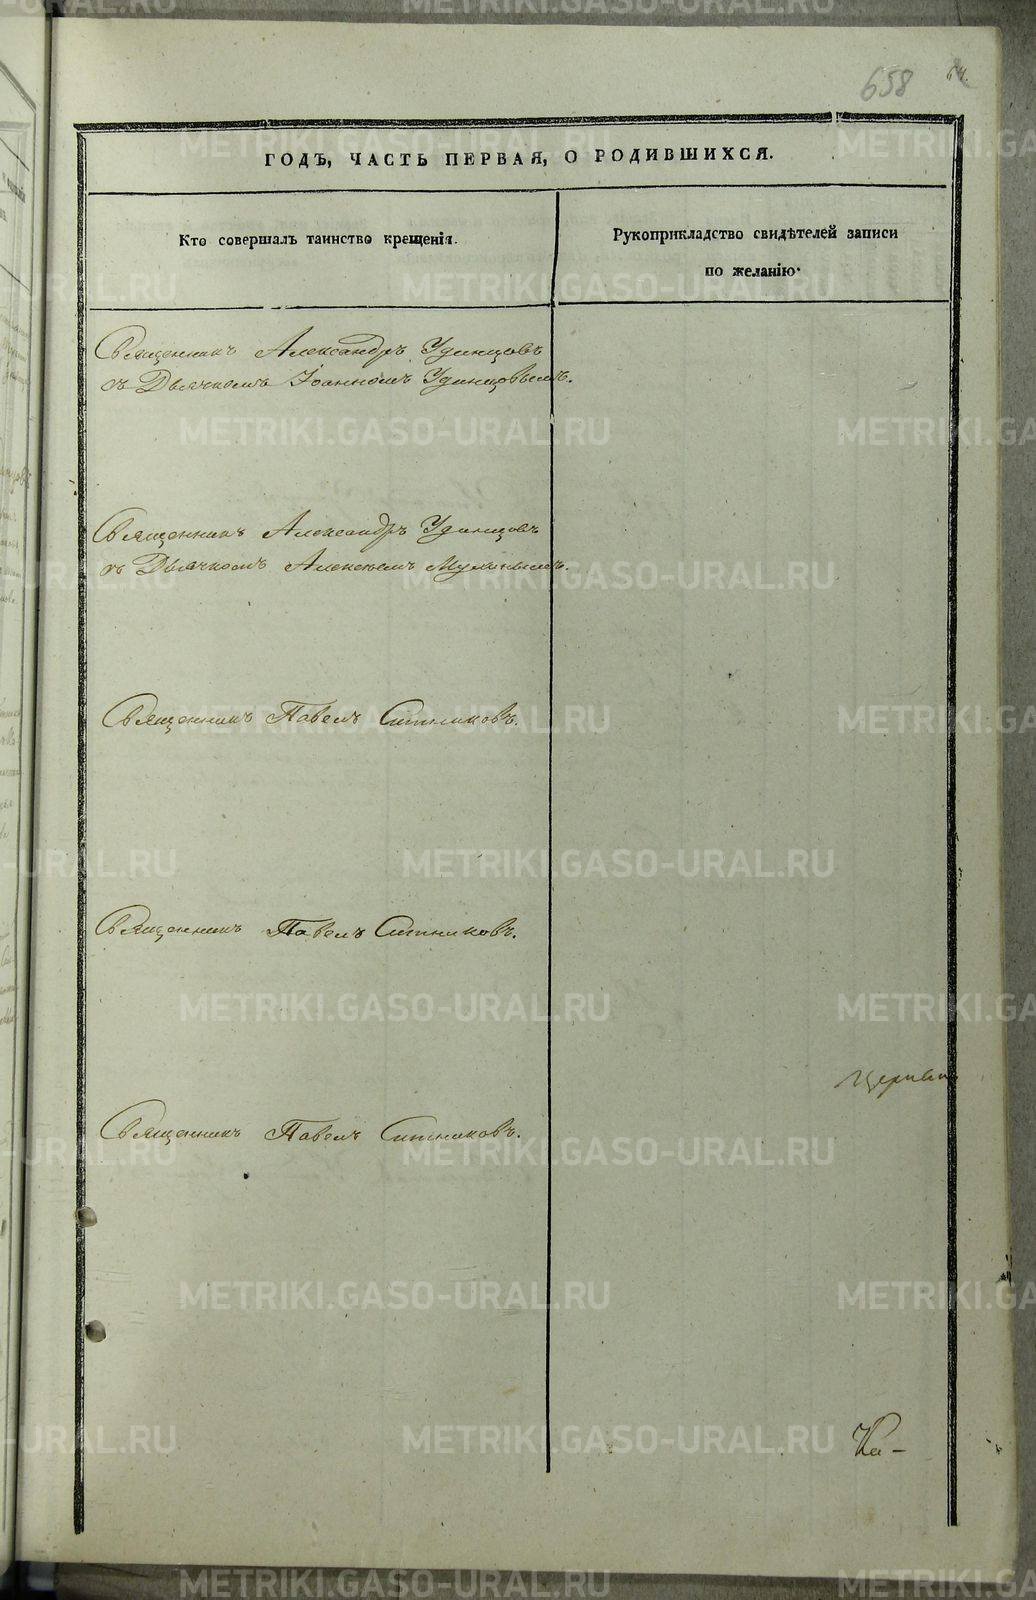 658
64.
ГОДЪ, ЧАСТЬ ПЕРВАЯ, О РОДИВШИХСЯ.
Кто совершалъ таинство крещенія.
Рукоприкладство свидѣтелей записи
по желанію.
Священникъ Александръ Удинцовъ
съ Дьячкомъ Іоанномъ Удинцовымъ.
Священникъ Александръ Удинцовъ
съ Дьячкомъ Алексѣемъ
Священникъ Павелъ Ситниковъ.
Священникъ Павелъ Ситниковъ.
Священникъ Павелъ Ситниковъ.
Ка-
METRIKI.GASO-URAL.RU